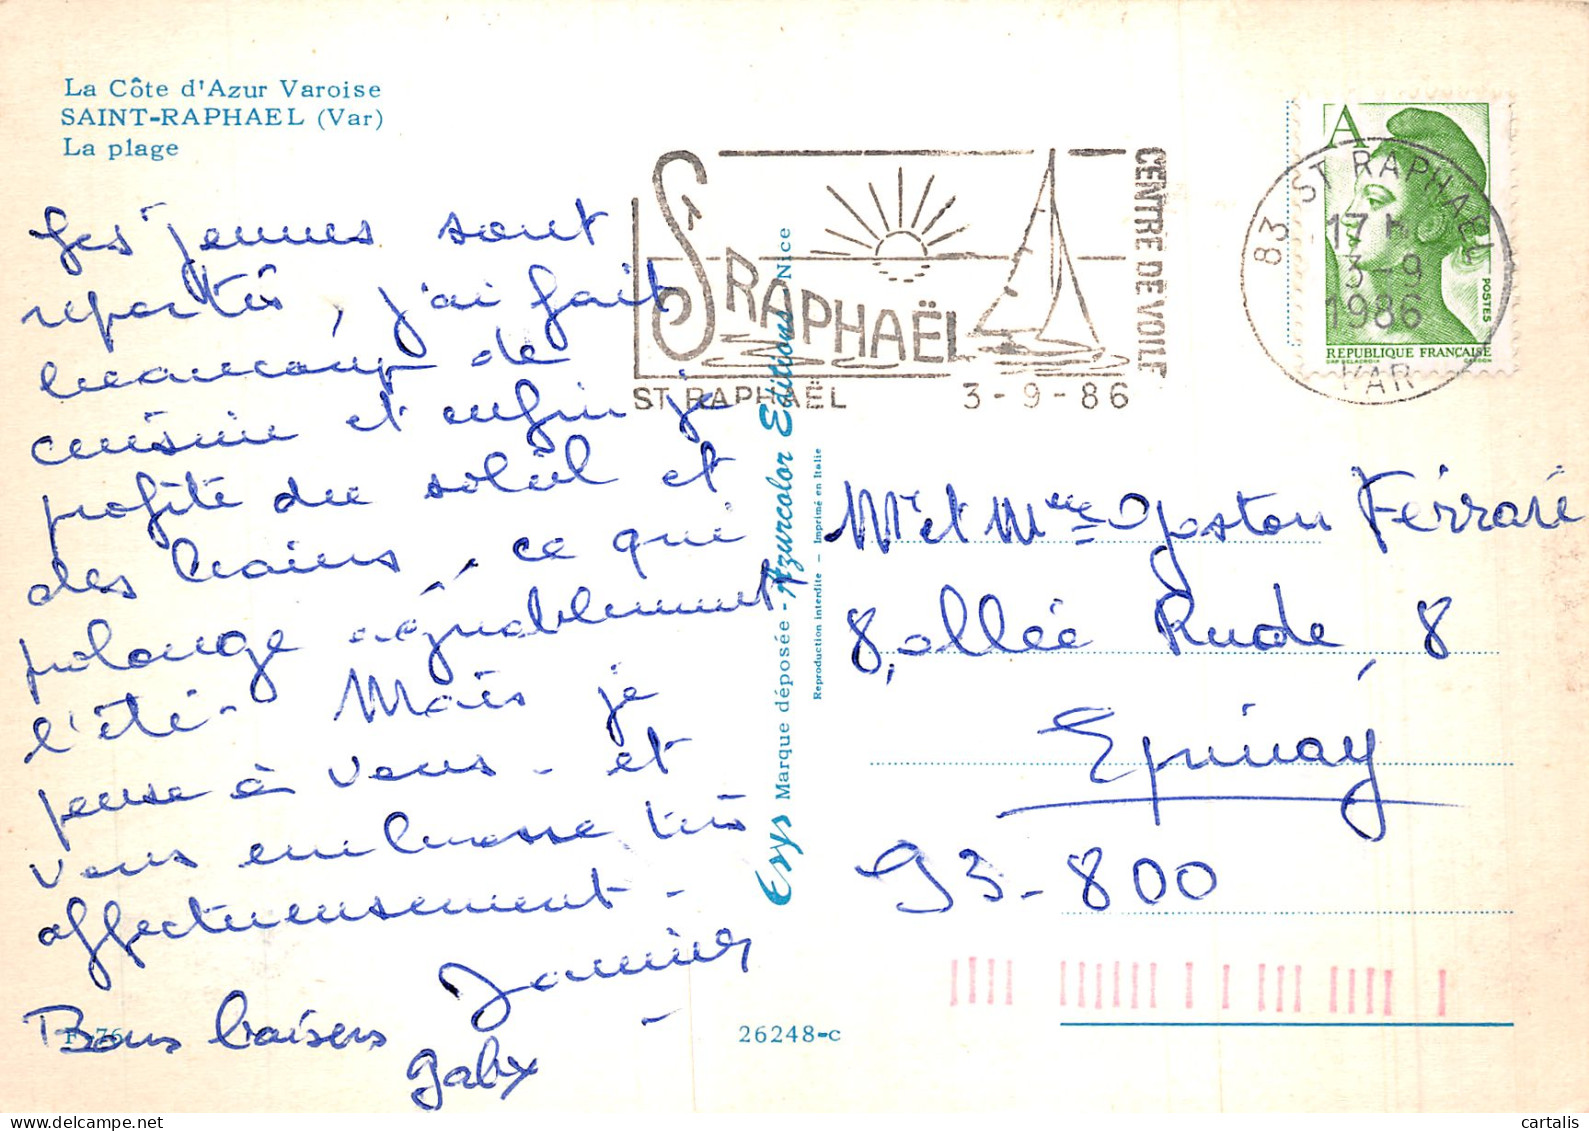 La Côte d'Azur Varoise
SAINT-RAPHAEL (Var)
La plage
Les jeunes sont
repartis, j'ai fait
beaucoup de
cuisine et enfin je
profite du soleil et
des bains, ce qui
prolonge agréablement
l'été - Mais je
pense à vous - et
vous embrasse très
affectueusement -
Bons baisers
Gaby
F 76
26248-c
Esys Marque déposée - Azurcolor Editions Nice
Reproduction interdite - Imprimé en Italie
St RAPHAËL
CENTRE DE VOILE
ST RAPHAËL 3-9-86
83 ST RAPHAEL
17 H
3-9
1986
VAR
A
POSTES
REPUBLIQUE FRANÇAISE
Mr et Mme Gaston Ferrari
8, allée Rude, 8
Epinay
93-800
cartalis